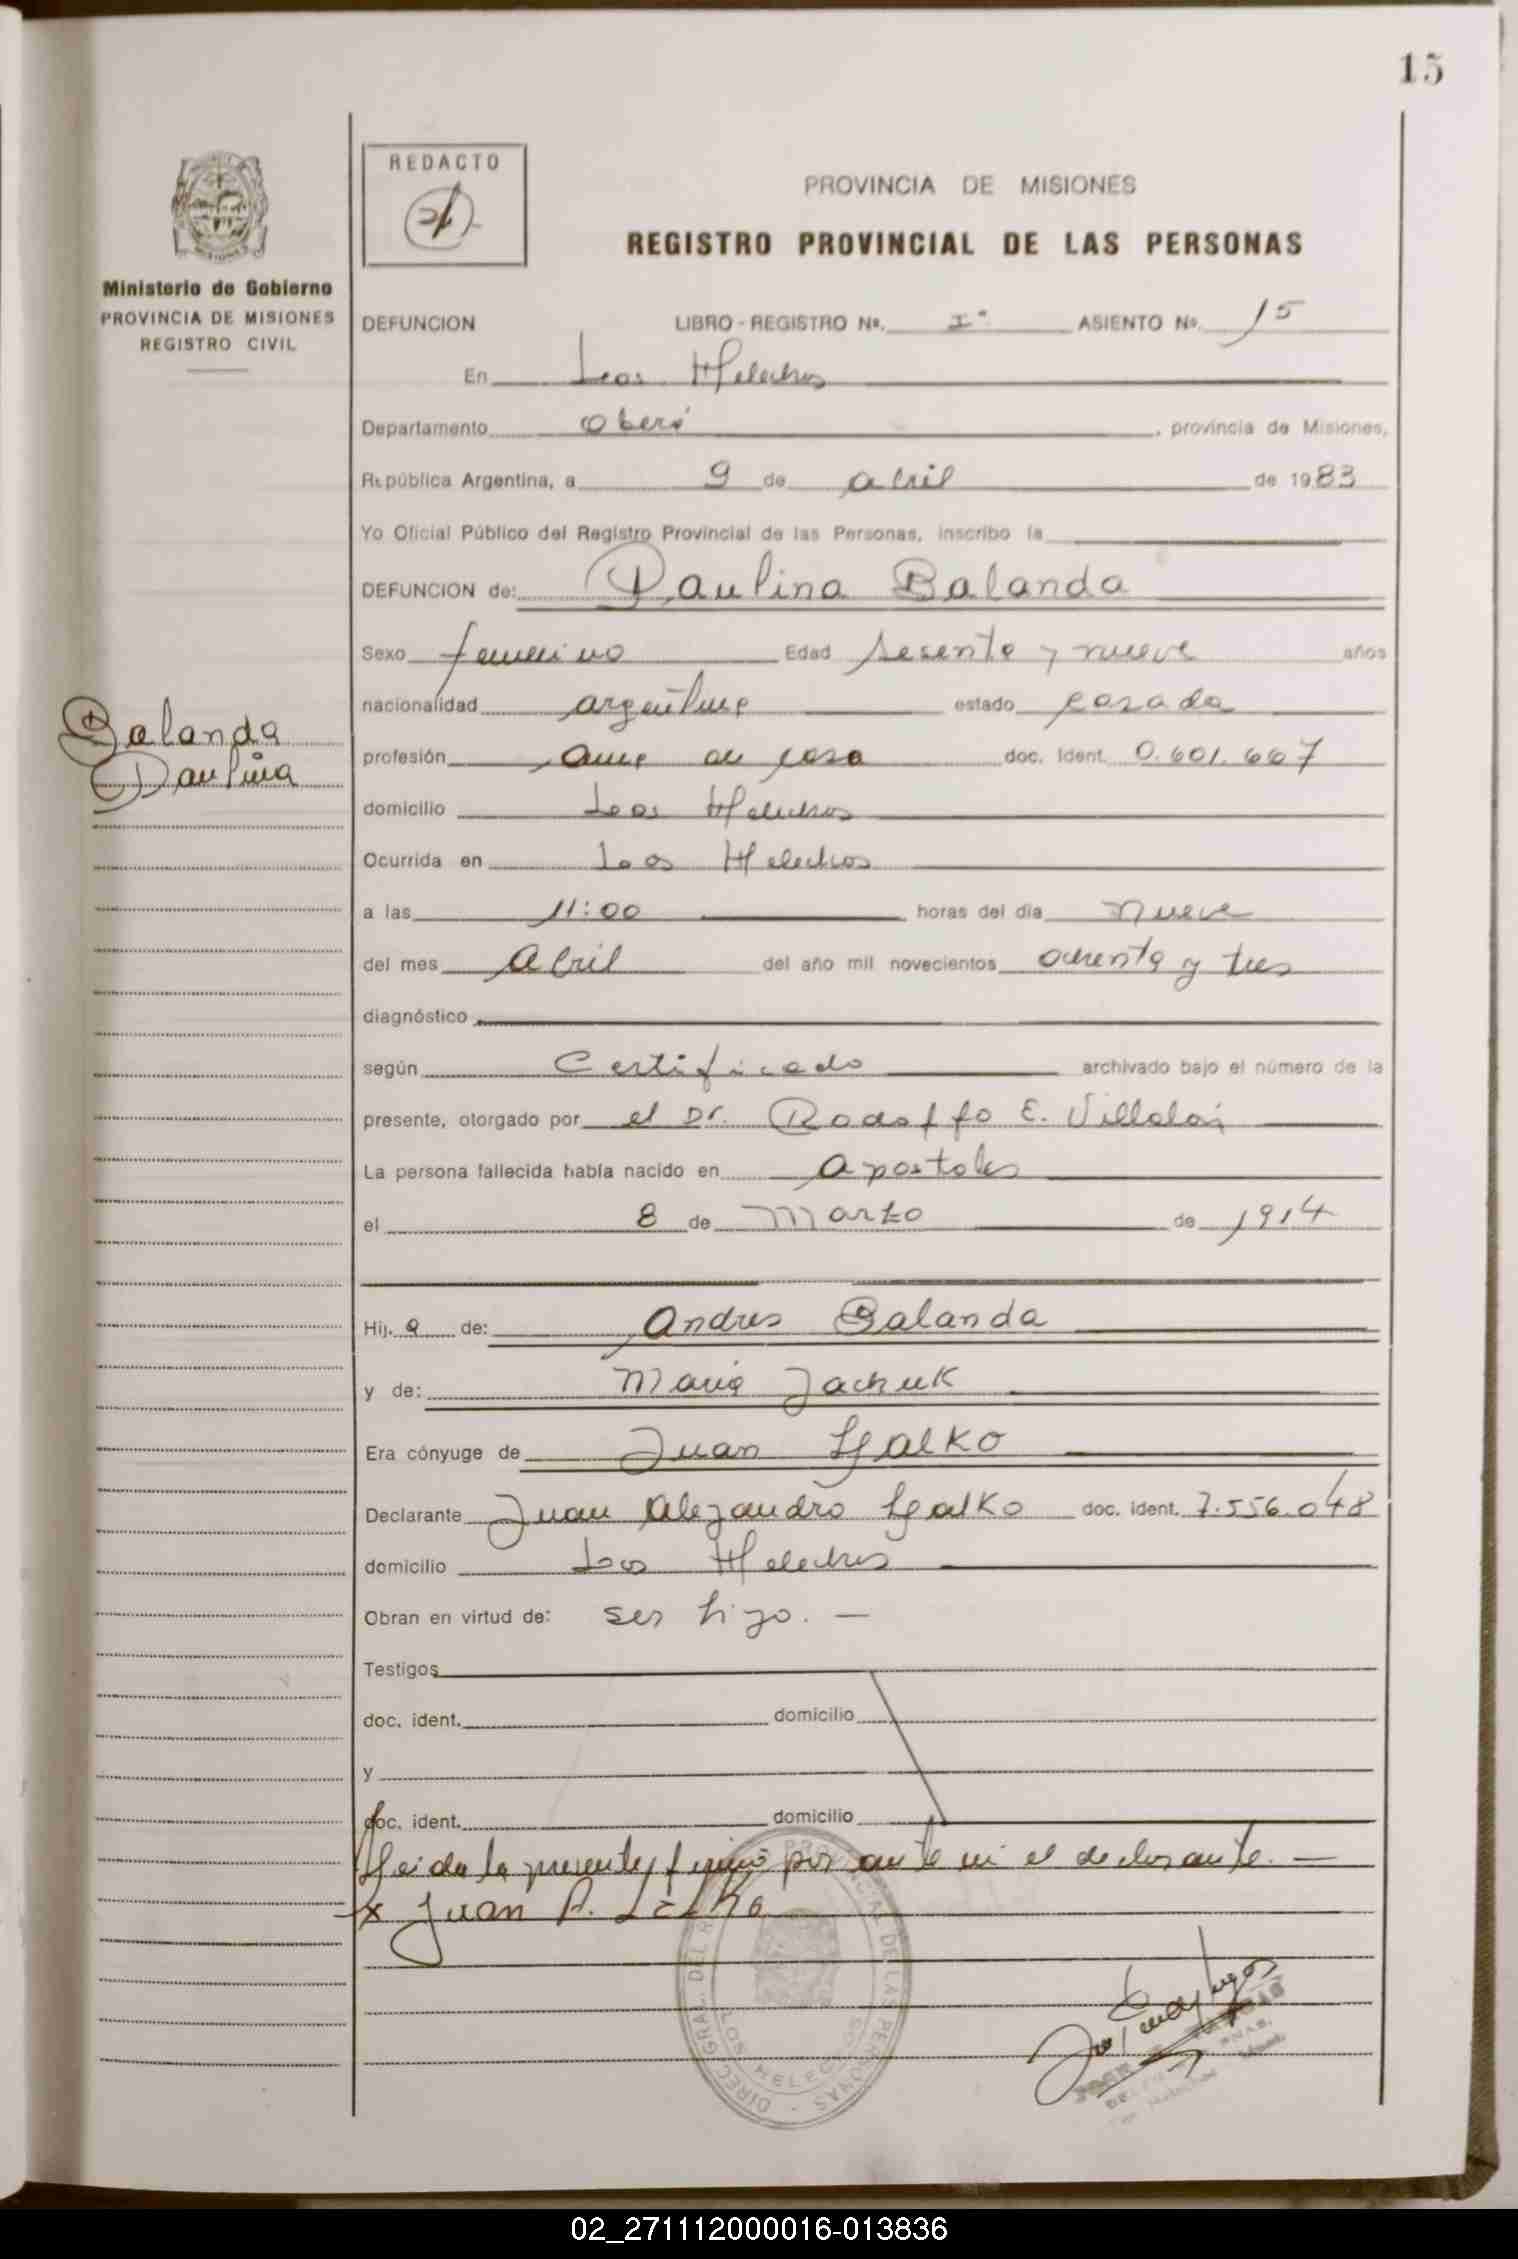 15
REDACTO
Ministerio de Gobierno
PROVINCIA DE MISIONES
REGISTRO CIVIL
PROVINCIA DE MISIONES
REGISTRO PROVINCIAL DE LAS PERSONAS
DEFUNCION LIBRO - REGISTRO Nº. Iº ASIENTO Nº. 15
En Los Helechos
Departamento Oberá, provincia de Misiones,
República Argentina, a 9 de abril de 1983
Yo Oficial Público del Registro Provincial de las Personas, inscribo la
DEFUNCION de: Paulina Balanda
Sexo femenino Edad sesenta y nueve años
nacionalidad argentina estado casada
Balanda
Paulina
profesión ama de casa doc. ident. 0.601.667
domicilio Los Helechos
Ocurrida en Los Helechos
a las 11:00 horas del día nueve
del mes abril del año mil novecientos ochenta y tres
diagnóstico
según Certificado archivado bajo el número de la
presente, otorgado por el Dr. Rodolfo E. Villalón
La persona fallecida había nacido en Apostoles
el 8 de Marzo de 1914
Hij. a de: Andres Balanda
y de: Maria Jachuk
Era cónyuge de Juan Halko
Declarante Juan Alejandro Halko doc. ident. 7.556.048
domicilio Los Helechos
Obran en virtud de: ser hijo. —
Testigos
doc. ident. domicilio
y
doc. ident. domicilio
Leida la presente, firmó por ante mi el declarante. —
x Juan A.
DIREC. GRAL. DEL R. PROVINCIAL DE LAS PERSONAS
LOS HELECHOS
02_271112000016-013836